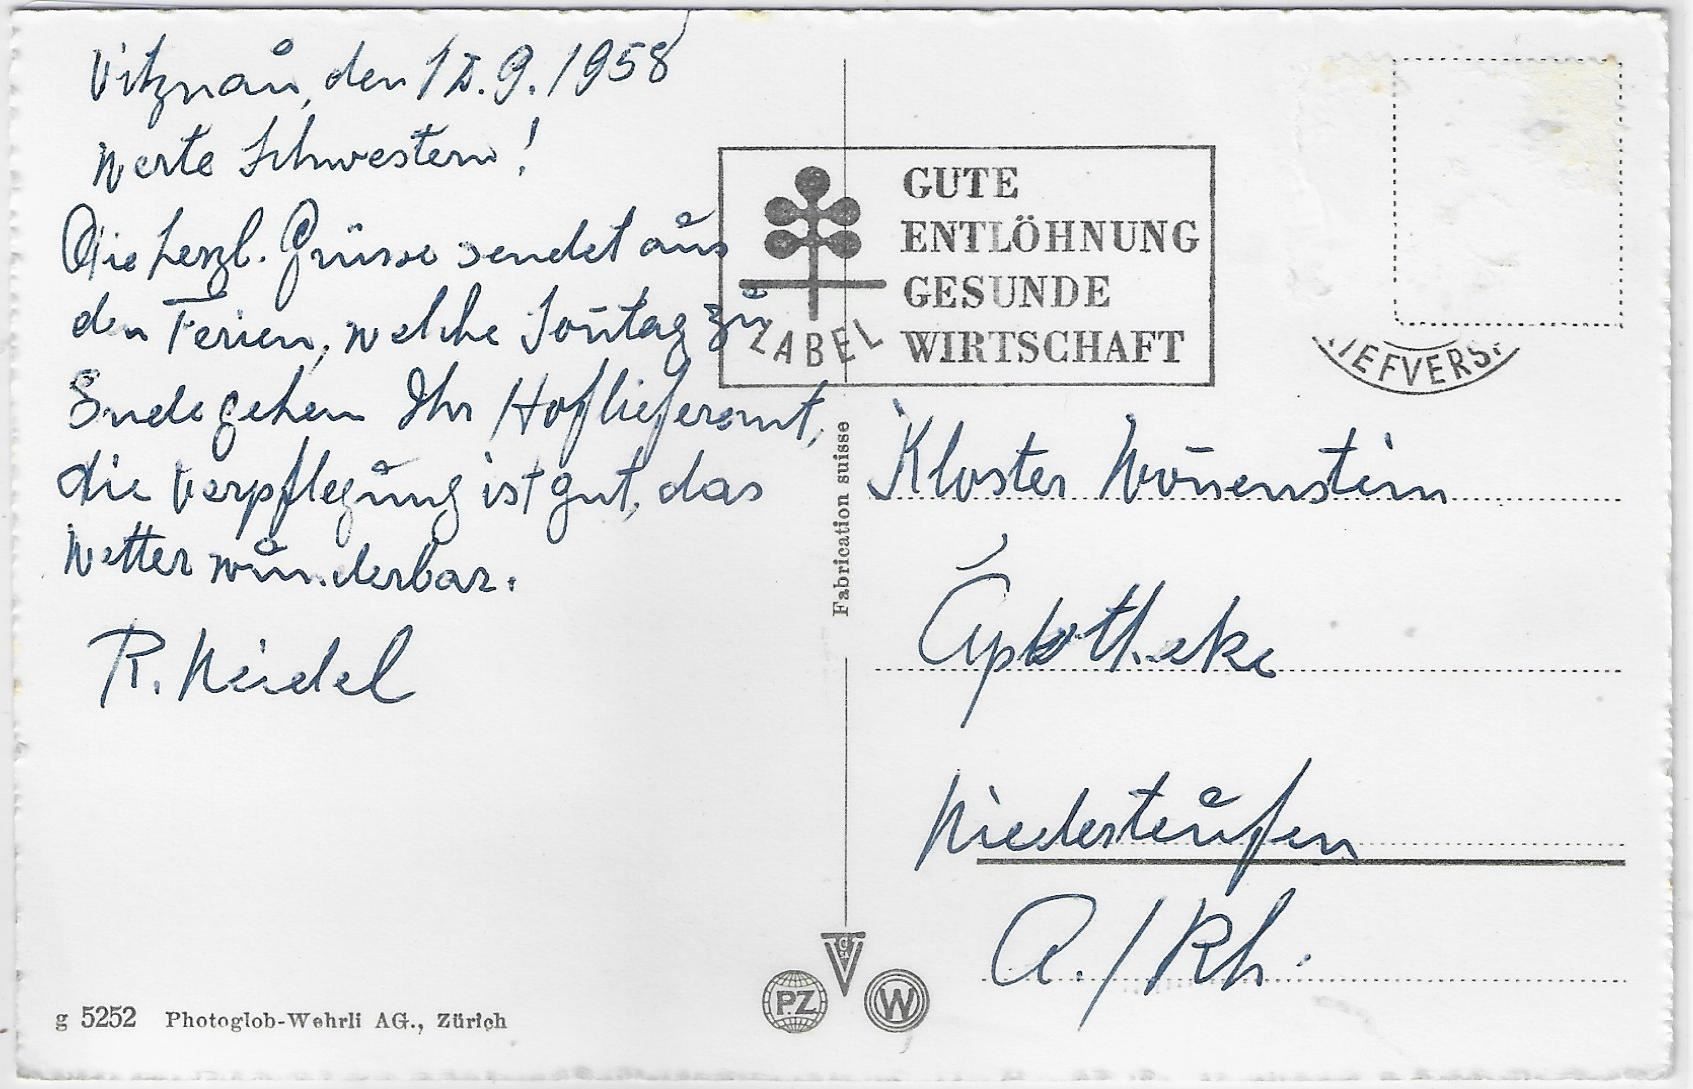 Vitznau, den 12.9.1958
Werte Schwestern!
Die herzl. Grüsse sendet aus
den Ferien, welche Sontag zu
Ende gehen Ihr Hoflieferant,
die Verpflegung ist gut, das
Wetter wunderbar.
R. Neidel
GUTE
ENTLÖHNUNG
GESUNDE
WIRTSCHAFT
ZABEL
IEFVERS
Kloster Wonnenstein
Apotheke
Niederteufen
A./Rh.
Fabrication suisse
PZ
W
g 5252 Photoglob-Wehrli AG., Zürich